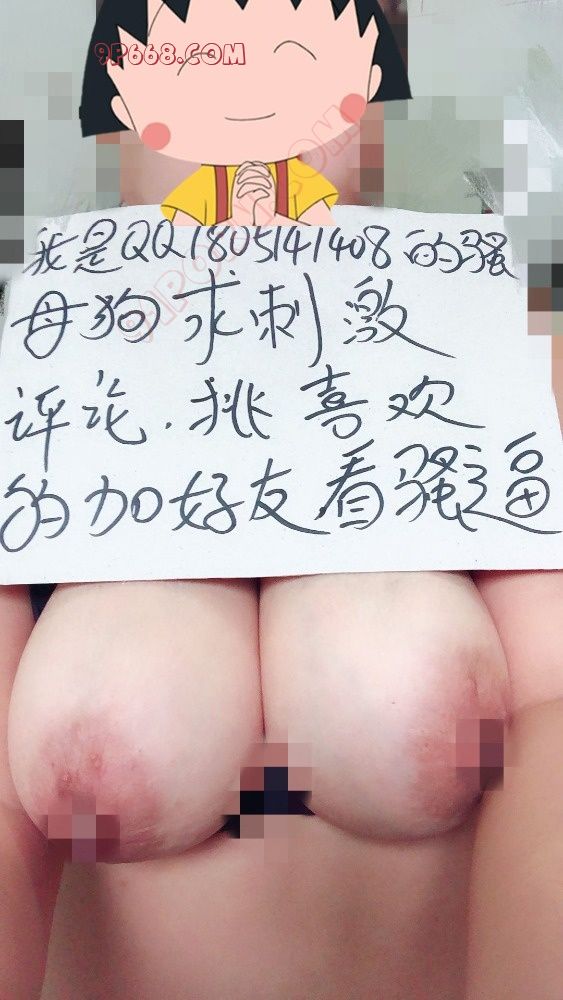 9P668.COM
我是QQ1805141408的骚
母狗求刺激
评论.挑喜欢
的加好友看骚逼